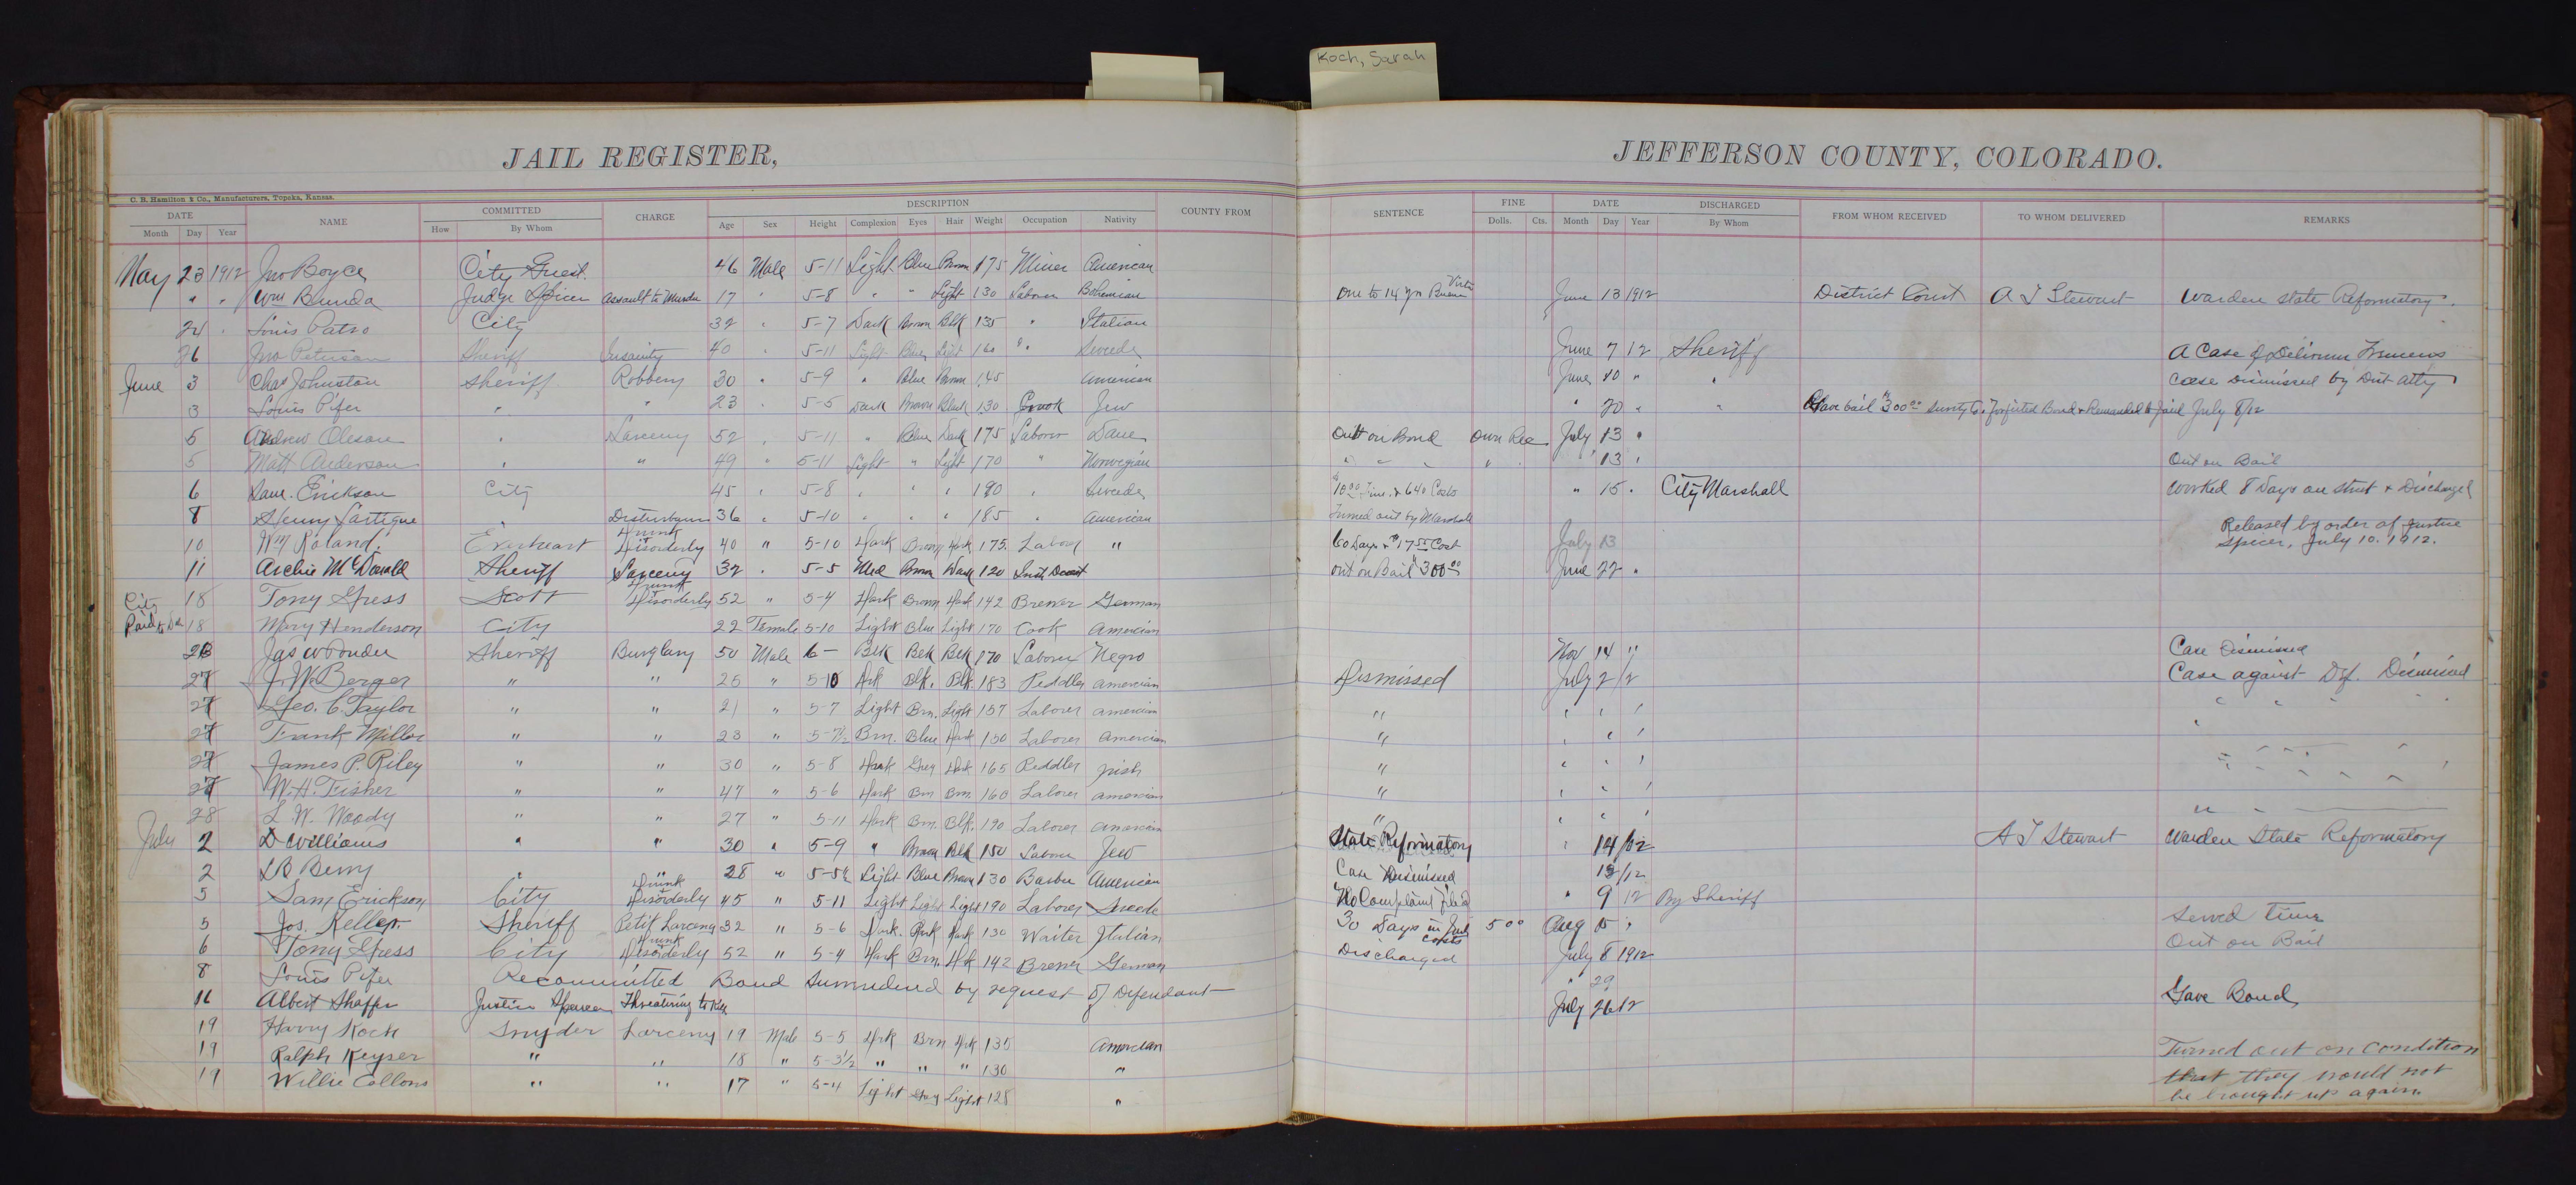 Koch, Sarah
JAIL REGISTER,
JEFFERSON COUNTY, COLORADO.
C. B. Hamilton & Co., Manufacturers, Topeka, Kansas.
DATE NAME COMMITTED CHARGE DESCRIPTION COUNTY FROM SENTENCE FINE DATE DISCHARGED FROM WHOM RECEIVED TO WHOM DELIVERED REMARKS
Month Day Year How By Whom Age Sex Height Complexion Eyes Hair Weight Occupation Nativity Dolls. Cts. Month Day Year By Whom
May 23 1912 Jno Boyce City Guest. 46 Male 5-11 Light Blue Brown 175 Miner American
" " Wm Bunda Judge Spicer Assault to Murder 17 " 5-8 " " Light 130 Laborer Bohemian One to 14 yrs Buena Vista June 13 1912 District Court A T Stewart Warden State Reformatory.
24 " Louis Patro City 32 " 5-7 Dark Brown Blk 135 " Italian
26 Jno Peterson Sheriff Insanity 40 " 5-11 Light Blue Light 160 " Swede June 7 12 Sheriff A Case of Delirium Tremens
June 3 Chas Johnston Sheriff Robbery 30 " 5-9 " Blue Brown 145 American June 10 " " Case Dismissed by Dist Atty
3 Louis Pifer " " 23 " 5-5 Dark Brown Black 130 Crook Jew " 20 " " Gave bail $300.00 Surety Co. Forfeited Bond & Remanded to Jail July 8/12
5 Andrew Oleson " Larceny 52 " 5-11 " Blue Dark 175 Laborer Dane Out on Bond Own Rec July 13 "
5 Matt Anderson " " 49 " 5-11 Light " Light 170 " Norwegian " " " " " 13 " Out on Bail
6 Sam. Erickson City 45 " 5-8 " " " 190 " Swede $10.00 Fine & 6.40 Costs " 15 " City Marshall Worked 8 Days on Street & Discharged
8 Henry Lartigue " Disturbance 36 " 5-10 " " " 185 " American Turned out by Marshall
10 Wm Roland. Everheart Drunk + Disorderly 40 " 5-10 Dark Brown Dark 175. Labor " 60 Days & $17.55 Cost July 13 Released by order of Justice Spicer, July 10. 1912.
11 Archie McDonald Sheriff Larceny 32 " 5-5 Med Brown Dark 120 out on Bail $300.00 June 22 "
City 18 Tony Gress Scott Drunk + Disorderly 52 " 5-4 Dark Brown Dark 142 Brewer German
Paid 18 Mary Henderson City 22 Female 5-10 Light Blue Light 170 Cook American
26 Jas Sheriff Burglary 50 Male 6- Blk Blk Blk 170 Laborer Negro Nov 14 " Case Dismissed
27 J. W. Berger " " 25 " 5-10 Drk Blk. Blk. 183 Peddler American Dismissed July 2/12 Case against Def. Dismissed
27 Geo. C Taylor " " 21 " 5-7 Light Brn. Light 157 Laborer American " " " " " " "
27 Frank Miller " " 23 " 5-7½ Brn. Blue Dark 150 Laborer American " " " " "
27 James P. Riley " " 30 " 5-8 Dark Grey Dark 165 Peddler Irish " " " " " " " "
27 W. H. Fisher " " 47 " 5-6 Dark Brn Brn. 160 Laborer American " " " " " " " "
28 L. W. Woody " " 27 " 5-11 Dark Brn. Blk. 190 Laborer American " " " " " "
July 2 D Williams " " 30 " 5-9 " Brown Blk 150 Laborer Jew State Reformatory " 14/12 A T Stewart Warden State Reformatory
2 LB Berry " " 28 " 5-5½ Light Blue Brown 130 Barber American Case Dismissed 13/12
5 Sam Erickson City Drunk + Disorderly 45 " 5-11 Light Light Light 190 Laborer Swede No Complaint Filed " 9 12 By Sheriff
5 Jos. Keller. Sheriff Petit Larceny 32 " 5-6 Dark. Dark Dark 130 Waiter Italian 30 Days in Jail costs 5 00 Aug 5 " Served Time
6 Tony Gress City Drunk Disorderly 52 " 5-4 Dark Brn. Drk 142 Brewer German Discharged July 8 1912 Out on Bail
8 Louis Pifer Recommitted Bond Surrendered by request of Defendant " 29
16 Albert Shaffer Justice Spencer Threatening to Kill July 26 12 Gave Bond
19 Harry Koch Snyder Larceny 19 Male 5-5 Drk Brn Drk 135 American
19 Ralph Keyser " " 18 " 5-3½ " " " 130 " Turned out on condition
19 Willie Collons " " 17 " 5-4 Light Grey Light 128 " that they would not
be brought up again.